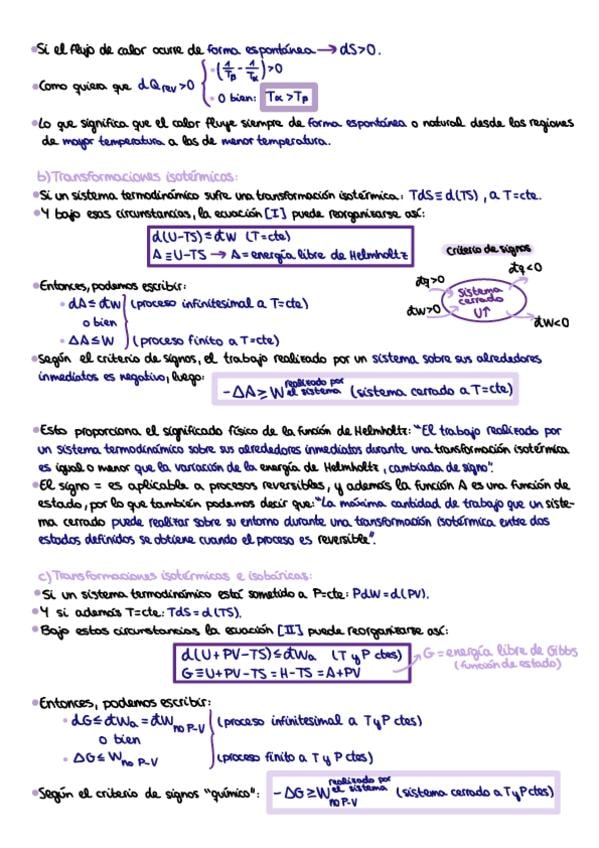 • Si el flujo de calor ocurre de forma espontánea → dS>0.
• Como quiera que đQrev>0 { • (1/Tβ - 1/Tα)>0
• O bien: Tα>Tβ
• Lo que significa que el calor fluye siempre de forma espontánea o natural desde las regiones
de mayor temperatura a las de menor temperatura.
b) Transformaciones isotérmicas:
• Si un sistema termodinámico sufre una transformación isotérmica: TdS≡d(TS), a T=cte.
• Y bajo esas circunstancias, la ecuación [I] puede reorganizarse así:
d(U-TS)≤đW (T=cte)
A≡U-TS → A=energía libre de Helmholtz
Criterio de signos
đq>0
đq<0
Sistema
cerrado
U↑
đW>0
đW<0
• Entonces, podemos escribir:
• dA≤đW (proceso infinitesimal a T=cte)
o bien
• ΔA≤W (proceso finito a T=cte)
• Según el criterio de signos, el trabajo realizado por un sistema sobre sus alrededores
inmediatos es negativo, luego: -ΔA≥W realizado por el sistema (sistema cerrado a T=cte)
• Esto proporciona el significado físico de la función de Helmholtz: "El trabajo realizado por
un sistema termodinámico sobre sus alrededores inmediatos durante una transformación isotérmica
es igual o menor que la variación de la energía de Helmholtz, cambiada de signo".
• El signo = es aplicable a procesos reversibles, y además la función A es una función de
estado, por lo que también podemos decir que: "La máxima cantidad de trabajo que un siste-
ma cerrado puede realizar sobre su entorno durante una transformación isotérmica entre dos
estados definidos se obtiene cuando el proceso es reversible".
c) Transformaciones isotérmicas e isobáricas:
• Si un sistema termodinámico está sometido a P=cte: PdW=d(PV).
• Y si además T=cte: TdS=d(TS).
• Bajo estas circunstancias la ecuación [II] puede reorganizarse así:
d(U+PV-TS)≤đWa (T y P ctes)
G≡U+PV-TS = H-TS = A+PV
G = energía libre de Gibbs
(función de estado)
• Entonces, podemos escribir:
• dG≤đWa = đW no P-V (proceso infinitesimal a T y P ctes)
o bien
• ΔG≤W no P-V (proceso finito a T y P ctes)
• Según el criterio de signos "químico": -ΔG≥W realizado por el sistema no P-V (sistema cerrado a T y P ctes)